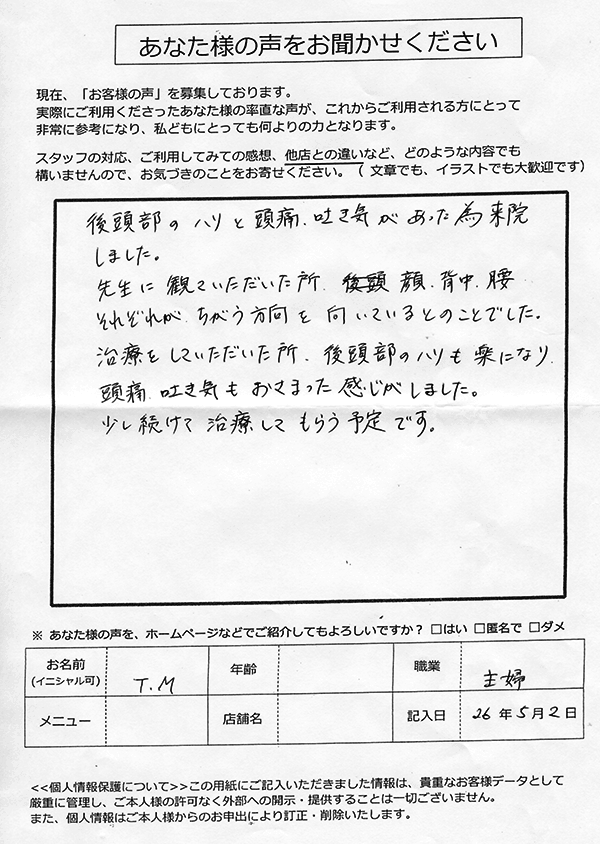 あなた様の声をお聞かせください
現在、「お客様の声」を募集しております。
実際にご利用くださったあなた様の率直な声が、これからご利用される方にとって
非常に参考になり、私どもにとっても何よりの力となります。
スタッフの対応、ご利用してみての感想、他店との違いなど、どのような内容でも
構いませんので、お気づきのことをお寄せください。（ 文章でも、イラストでも大歓迎です）
後頭部のハリと頭痛、吐き気があった為来院
しました。
先生に観ていただいた所、後頭 顔、背中、腰
それぞれが、ちがう方向を向いているとのことでした。
治療をしていただいた所、後頭部のハリも楽になり、
頭痛、吐き気もおさまった感じがしました。
少し続けて治療してもらう予定です。
※ あなた様の声を、ホームページなどでご紹介してもよろしいですか？ □はい □匿名で □ダメ
お名前
(イニシャル可) T.M 年齢 職業 主婦
メニュー 店舗名 記入日 26年5月2日
<<個人情報保護について>>この用紙にご記入いただきました情報は、貴重なお客様データとして
厳重に管理し、ご本人様の許可なく外部への開示・提供することは一切ございません。
また、個人情報はご本人様からのお申出により訂正・削除いたします。